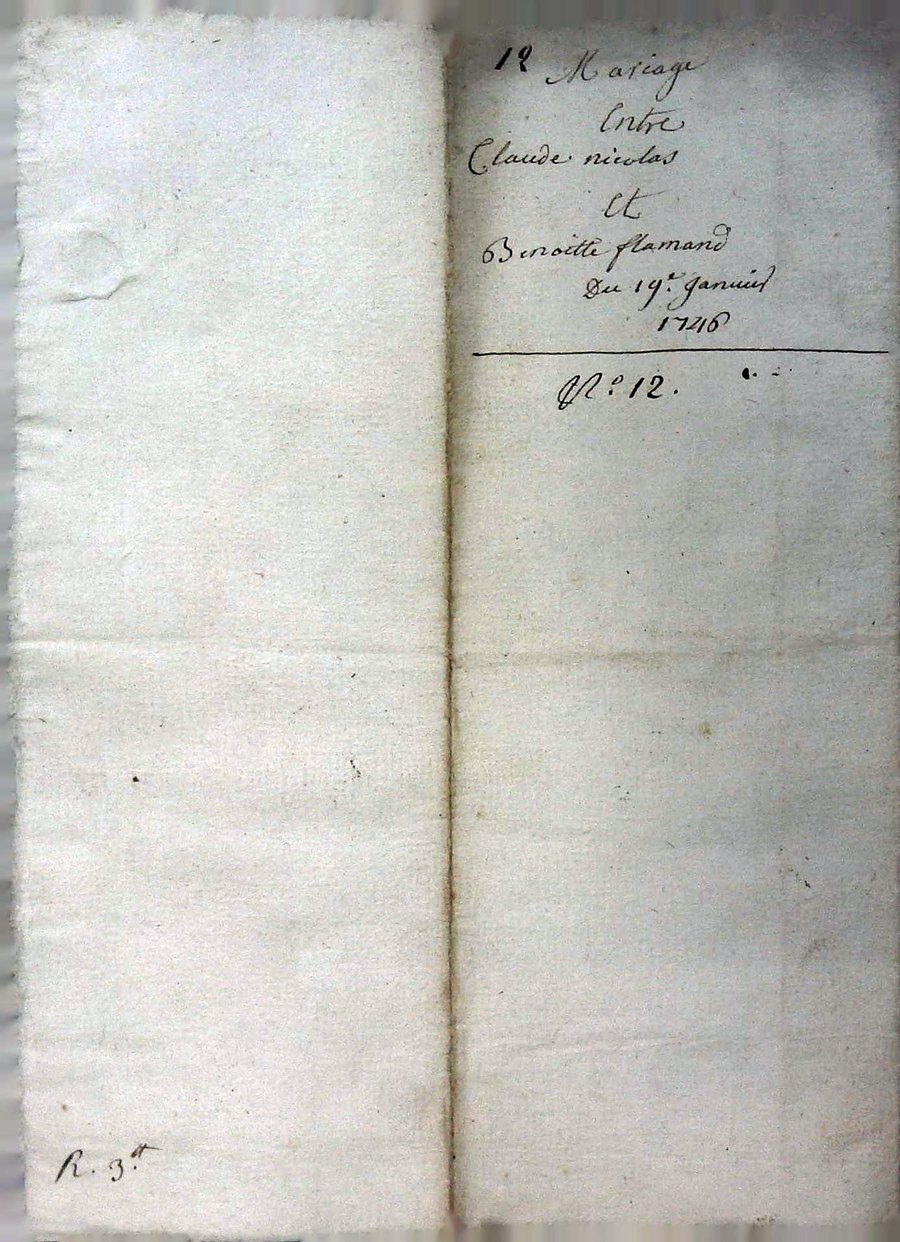 12 Mariage
Entre
Claude nicolas
Et
Benoitte flamand
Du 19.e Janvier
1746
N.o 12.
R. 3.tt